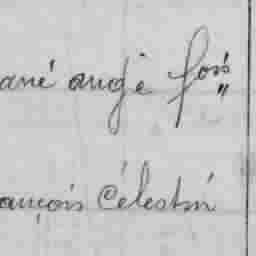 ané ange fois "
ançois Célestin